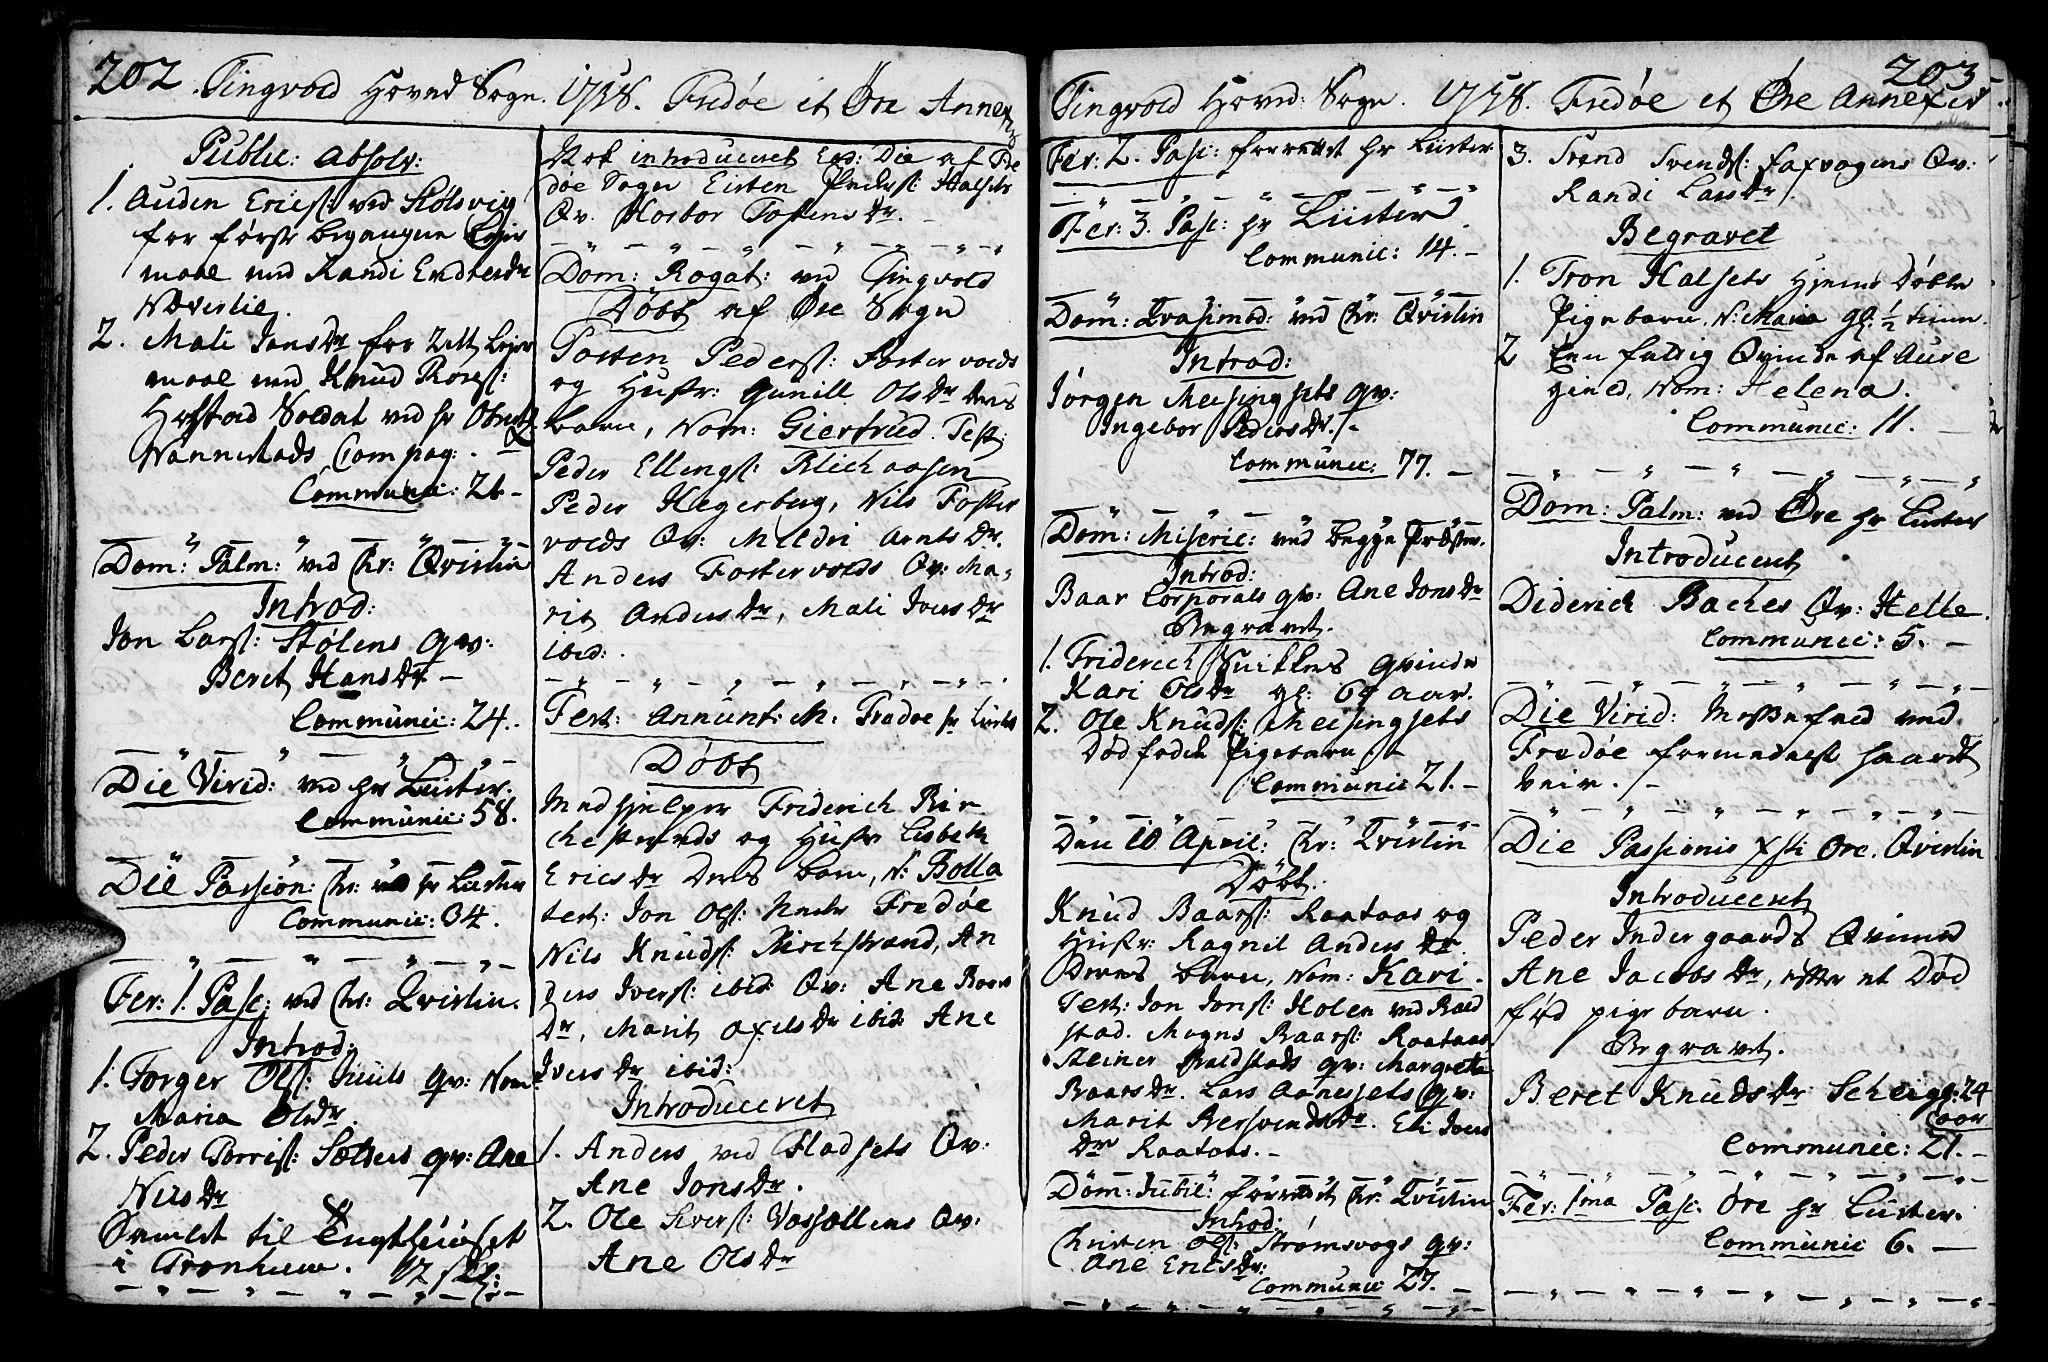 202. Tingvold Hoved Sogn. 1738. Fredøe et Øre Annexer
Public: Absolv:
1. Auden Erics: ved Stølsvig
for første begangne Leier
maal med Randi Endresdr
Neverlie.
2. Mali Jonsdr for 2det Leier
maal med Knud Roess:
Hofstad Soldat ved hr Obrist
Wannestads Compag: . –
Communic: 21. –
Dom: Palm: ved hr: Qvistin
Introd:
Jon Lars: Stølens qv:
Beret Hansdr –
Communic: 24.
Die Virid: ved hr Lüster.
Communic: 58.
Die Passion: hr: ved hr Lüster
Communic: 34.
Fer: 1. Pasc: ved hr: Qvistin.
Introd:
1. Torger Ols: Juuls qv: Nom
Maria Olsdr.
2. Peder Porris: Sæters qv: Ane
Nilsdr
Samlet til Tugthuuset
i Tronhiem. 12 sk:
Nok introduceret Eod: Die af Fre
døe Sogn Eisten Peders: Halsets
Qv. Horbor Tostensdr. –
Dom: Rogat: ved Tingvold
Døbt af Øre Sogn
Tosten Peders: Fostervolds
og Hustr: Gunill Olsdr Deres
barn, Nom: Giertrud. Test:
Peder Ellings: Blichaasen
Peder Hegerberg, Nils Foster
volds Qv: Mildri Arntsdr.
Anders Fostervolds Qv: Ma-
rit Andersdr, Mali Iversdr
ibid: .
Fest: Annunt: M: Fredøe hr Lüster
Døbt
Medhielper Friderich Bir
chestrands og Hustr Lisbeth
Ericsdr Deres barn, N: Bolla
test: Jon Ols: Nedr Fredøe
Nils Knuds: Birchstrand, An
ders Ivers: ibid Qv: Ane Baars
dr, Marit Axelsdr ibid Ane
Iversdr ibid:
Introduceret
1. Anders ved Stadsets Qv:
Ane Jonsdr.
2. Ole Sivers: Vassollens Qv:
Ane Olsdr
203
Tingvold Hoved: Sogn. 1738. Fredøe et Øre Annexer
Fer: 2. Pasc: forrettet hr Lüster
Fer: 3. Pasc: hr Lüster
Communic: 14. –
Dom: Qvasimod: ved hr: Qvistin
Introd:
Jørgen Meisingsets qv:
Ingebor Pedersdr. –
Communic: 77. –
Dom: Miseric: ved begge Præster.
Introd:
Baar Corporals qv: Ane Jonsdr
Begravet.
1. Friderich Snikkers qvinde
Kari Olsdr gl: 64 aar.
2. Ole Knuds: Meisingsets
Dødfødde Pigebarn –
Communic 21. –
Den 10 April: hr: Qvistin
Døbt:
Knud Baars: Raataas og
Hustr: Ragnil Andersdr
Deres barn, Nom: Kari.
Test: Jon Jons: Holen ved Rald
stad. Mogns Baars: Raataas
Steiner Raldstads qv: Margreta
Baarsdr. Lars Aanessets qv:
Marit Bersvendsdr. Eli Ivers
dr Raataas. –
Dom: Jubil: forrettet hr: Qvistin
Introd:
Christen Ols: Strømsvogs qv:
Ane Ericsdr:
Communic 27. –
3. Trond Svends: Faxvogens Qv:
Randi Larsdr.
Begravet
1. Tron Halsets Hjemme Døbte
Pigebarn. N: Maria gl: ½ time.
2 Een fattig Qvinde af Aure
gield, Nom: Helena.
Communic: 11. –
Dom: Palm: ved Øre hr Lüster
Introduceret
Diderich Baches Qv: Helle.
Communic: 5. –
Die Virid: Messefred ved
Fredøe formedelst haardt
veir. –
Die Passionis Xsti Øre. Qvistin
Introduceret
Peder Indergaards Qvinde
Ane Jacobsdr, efter et Død
fød pigebarn.
Begravet.
Beret Knudsdr Schei gl: 24
aar
Communic: 21. –
Fer: 1ma Pasc. Øre hr Lüster.
Communic 6. –